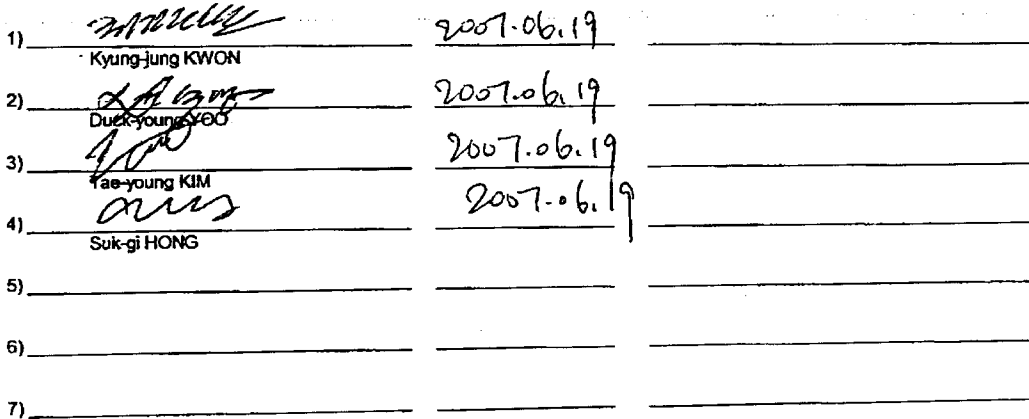 1) 2007.06.19
Kyung-jung KWON
2) 2007.06.19
Duck-young YOO
3) 2007.06.19
Tae-young KIM
4) 2007.06.19
Suk-gi HONG
5)
6)
7)